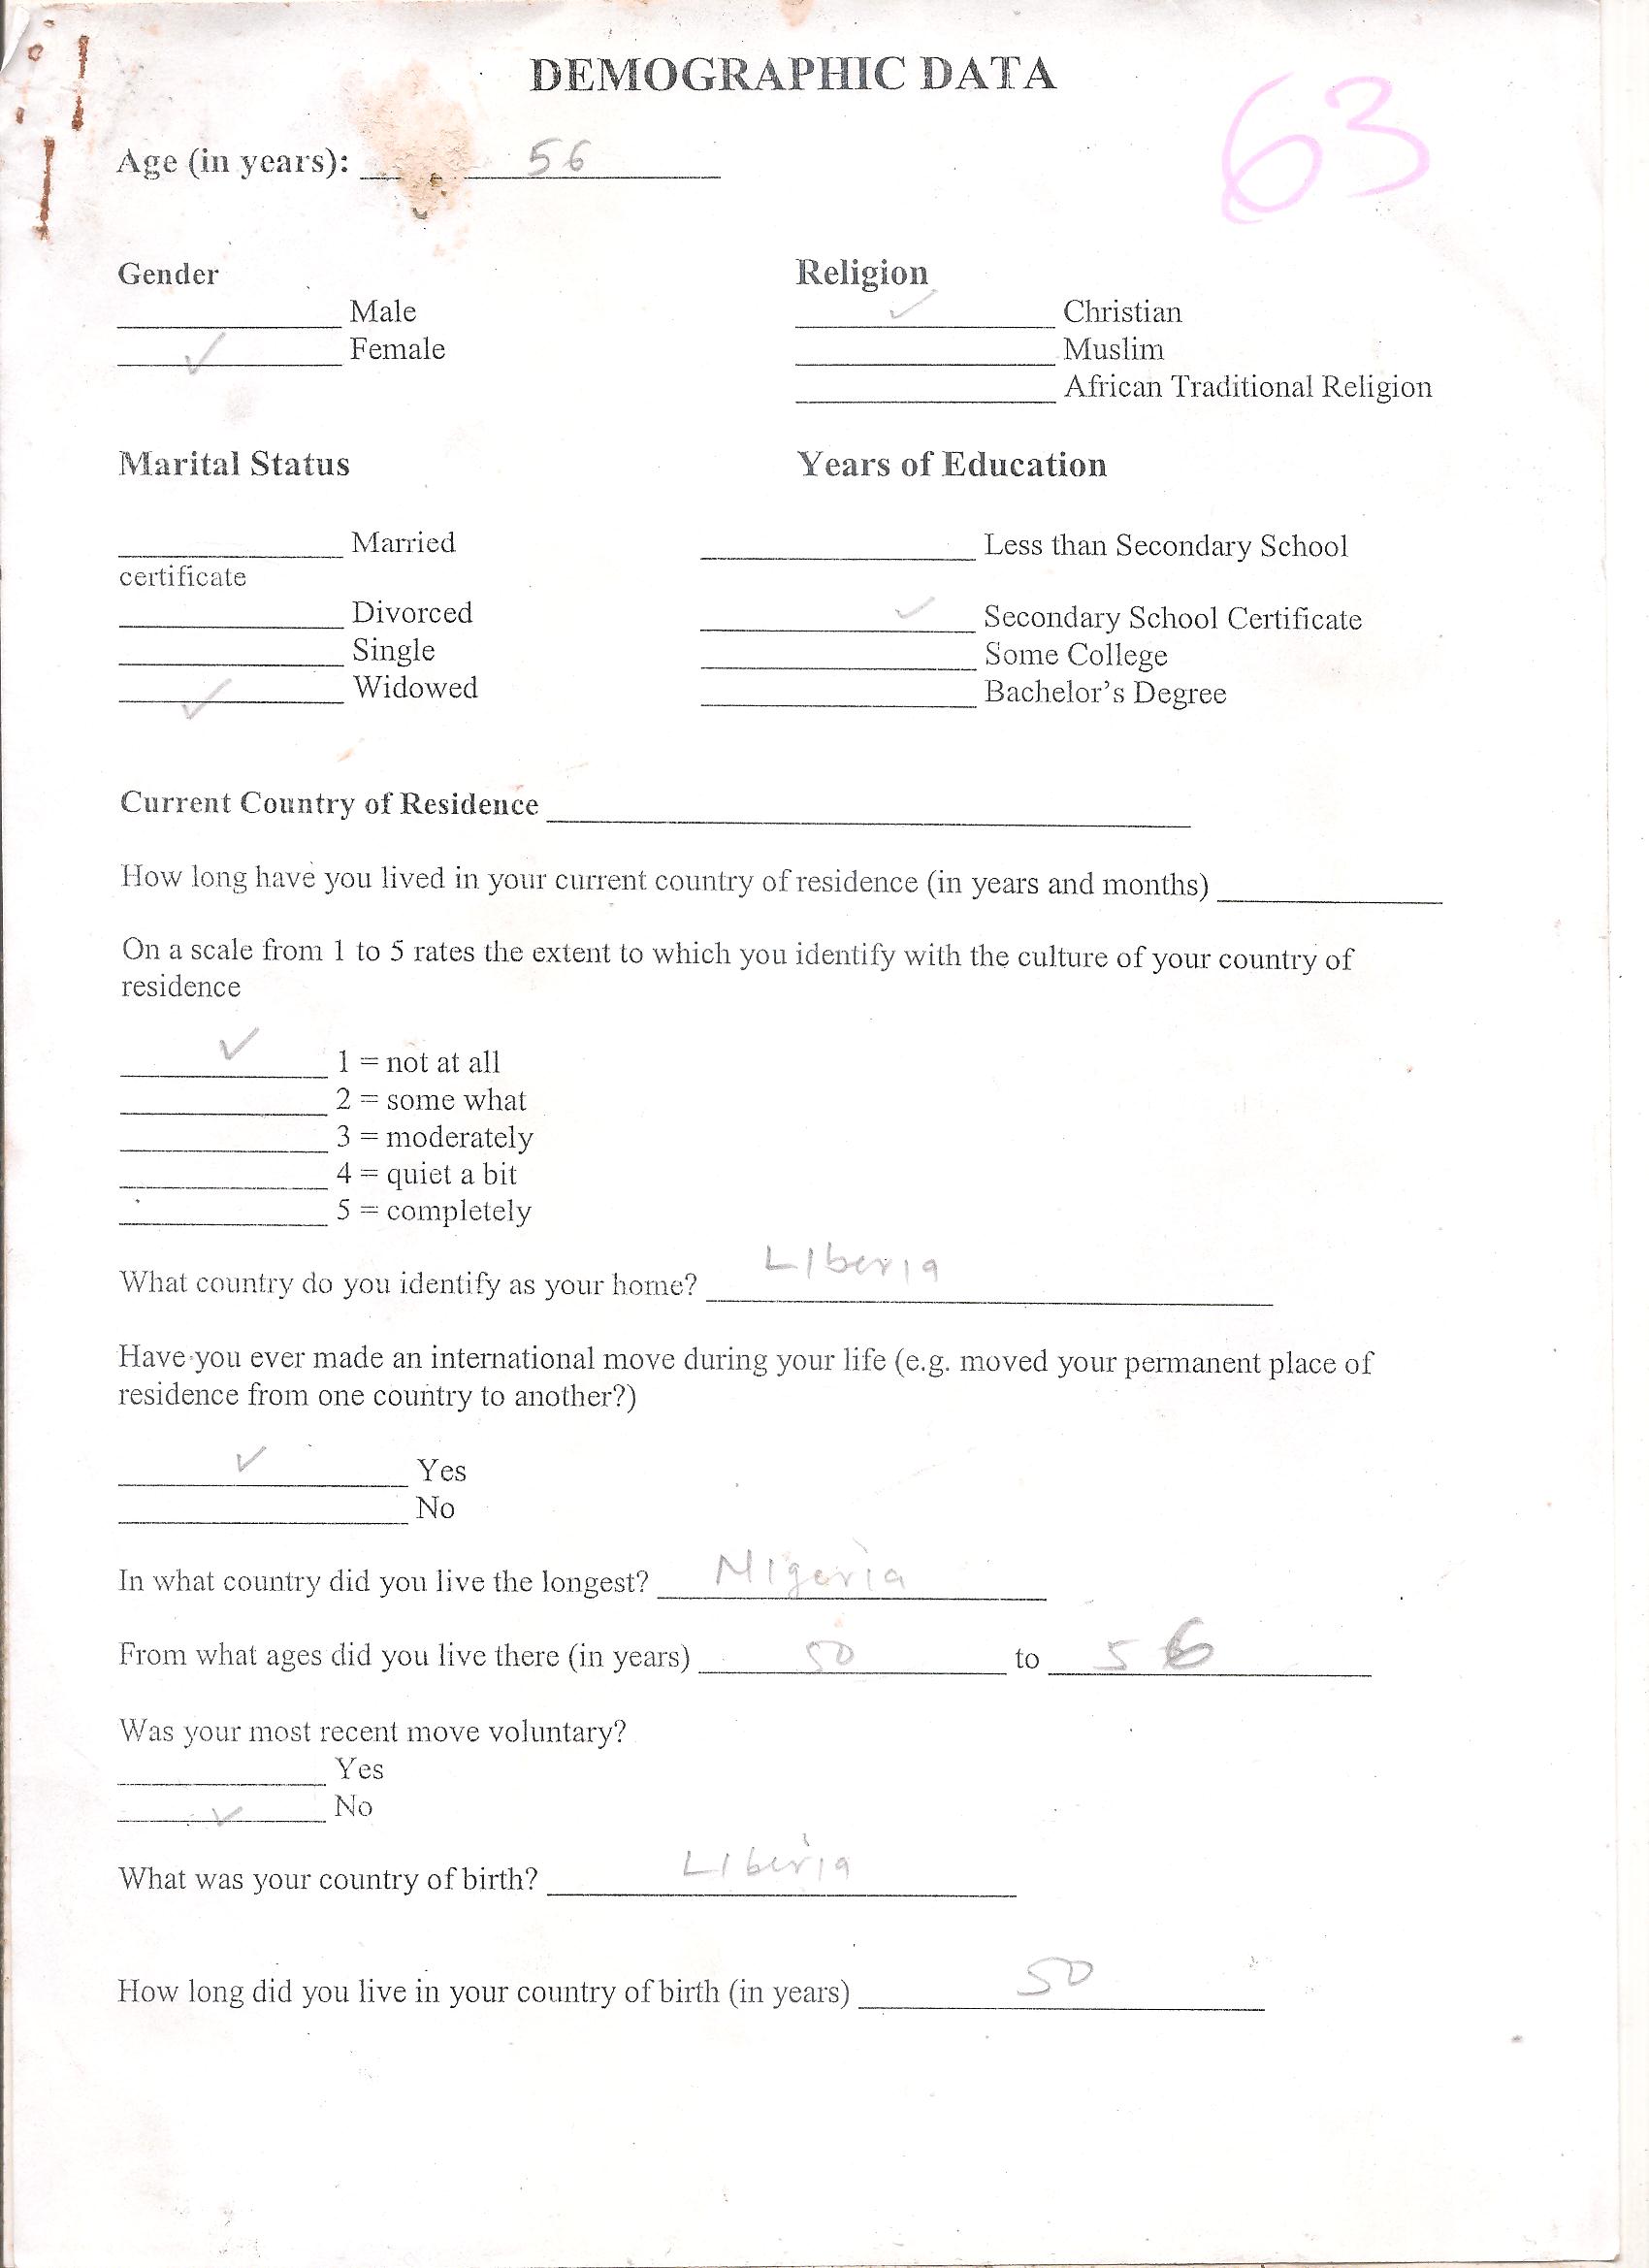 DEMOGRAPHIC DATA
63
Age (in years): 56
Gender
Religion
Male
✓ Christian
✓ Female
Muslim
African Traditional Religion
Marital Status
Years of Education
Married
Less than Secondary School
certificate
Divorced
✓ Secondary School Certificate
Single
Some College
✓ Widowed
Bachelor's Degree
Current Country of Residence
How long have you lived in your current country of residence (in years and months)
On a scale from 1 to 5 rates the extent to which you identify with the culture of your country of
residence
✓ 1 = not at all
2 = some what
3 = moderately
4 = quiet a bit
5 = completely
What country do you identify as your home? LIberia
Have you ever made an international move during your life (e.g. moved your permanent place of
residence from one country to another?)
✓ Yes
No
In what country did you live the longest? NIgeria
From what ages did you live there (in years) 50 to 56
Was your most recent move voluntary?
Yes
✓ No
What was your country of birth? LIberia
How long did you live in your country of birth (in years) 50